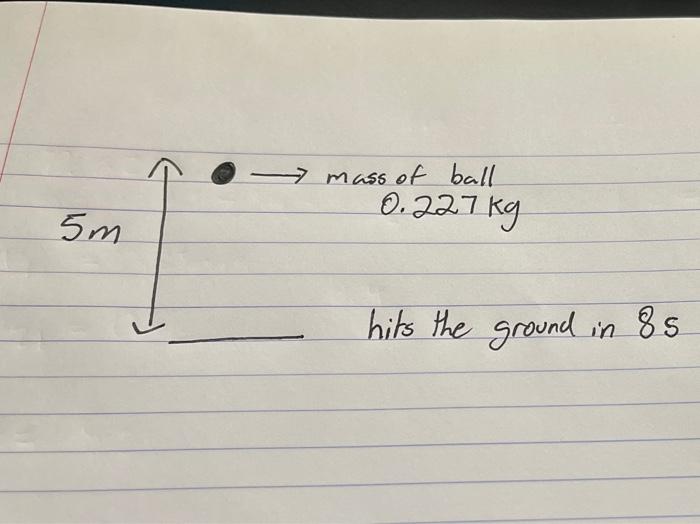 mass of ball
0.227 kg
5m
hits the ground in 8s